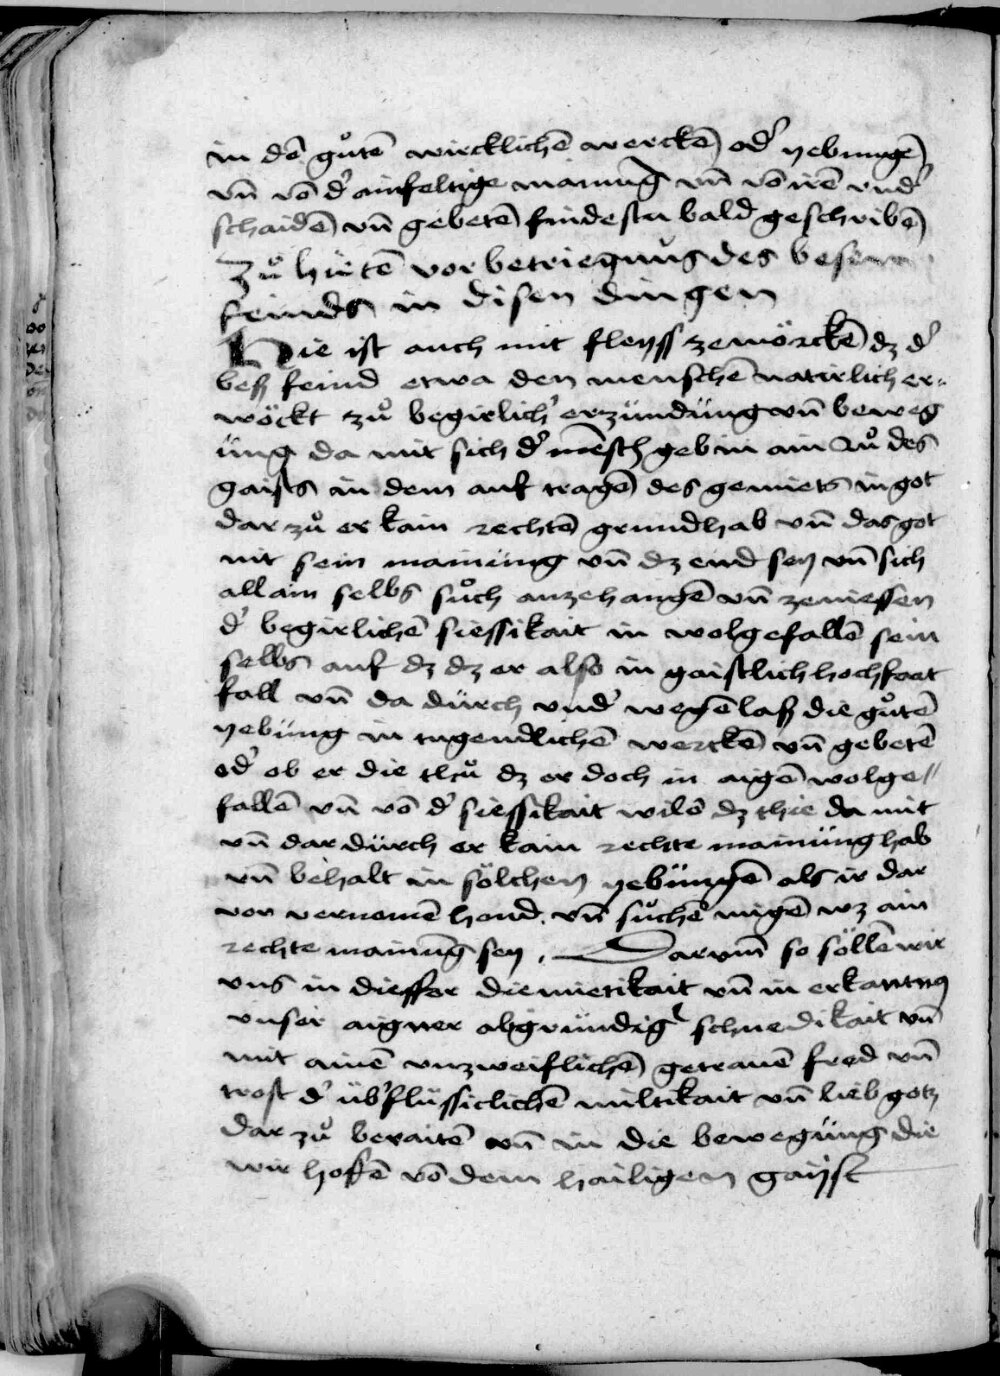 in dē gůtē wircklichē werckē od' yebungē
vn̄ vō d' ainfeltige mainūg vn̄ vō irē vnd'
schaidē vn̄ gebetē findestu bald geschribē
Zů hietē vor betriegnus des besen
feinds in disen dingen
Hie ist auch mit fleyss zemörckē dz d'
beß feind etwa den menschē natirlich er„
wöckt zů begirlich' erzündung vn̄ beweg
üng da mit sich d' mēsch geb in ain rů des
gaists in dem auf tragē des gemiets in got
dar zů er kain rechtē grund hab vn̄ das got
nit sein mainūng vn̄ dz end sey vn̄ sich
allain selbs sůch anzehangē vn̄ zeniessen
d' begirlichē siessikait in wolgefallē sein
selbs auf dz dz er also in gaistlich hochfart
fall vn̄ da dürch vnd' wegē laß die gůtē
yebüng in tugendlichē werckē vn̄ gebetē
od' ob er die thů dz er doch in aigē wolge„
fallē vn̄ vō d' siessikait wilē dz thie da mit
vn̄ dar dürch er kain rechte mainüng hab
vn̄ behalt in sölchen yebüngē als ir dar
vor vernomē hond. vn̄ sůchē migē wz ain
rechte mainūg sey. Darvm̄ so söllē wir
vns in dieffer diemietikait vn̄ in erkantnus
vnser aigner abgründig' schnedikait vn̄
mit ainē vnzweiflichē getrauē fred vn̄
trost d' üb'flüssiclichē miltikait vn̄ lieb gotz
dar zů beraitē vn̄ in die bewegüng die
wir hoffē vō dem hailigen gaijst